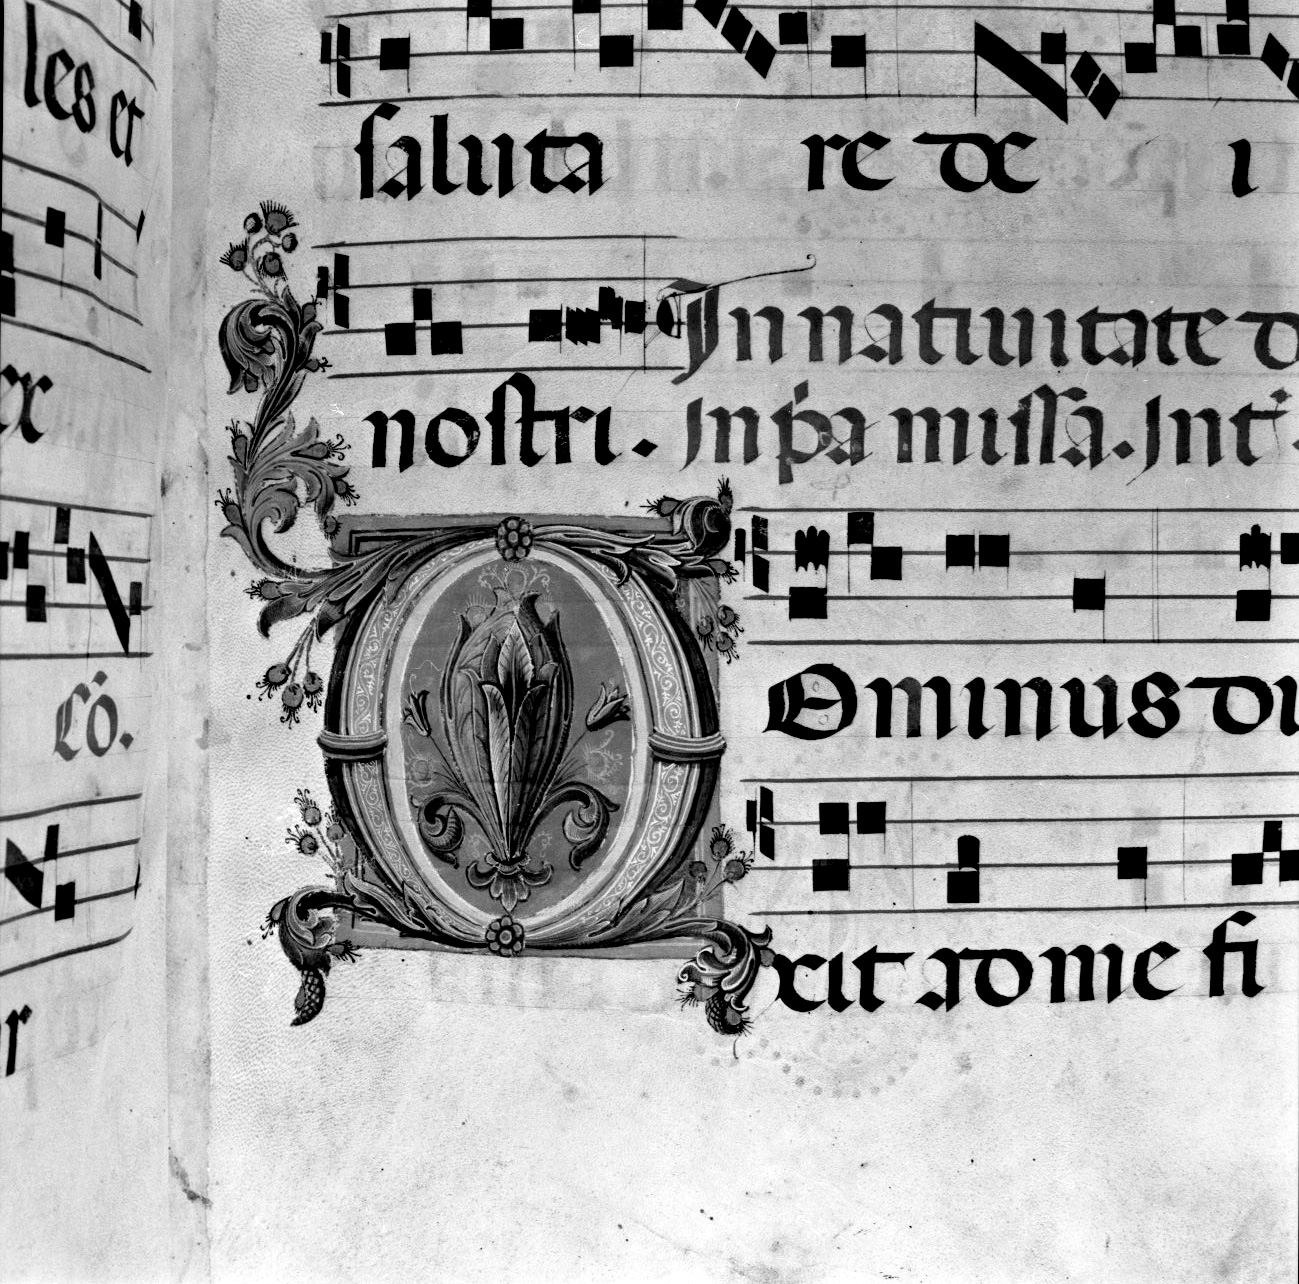 les et
ex
Có.
r
saluta re de i
In natiuitate d
nostri. In pa missa. Int
Ominus di
xit ad me fi